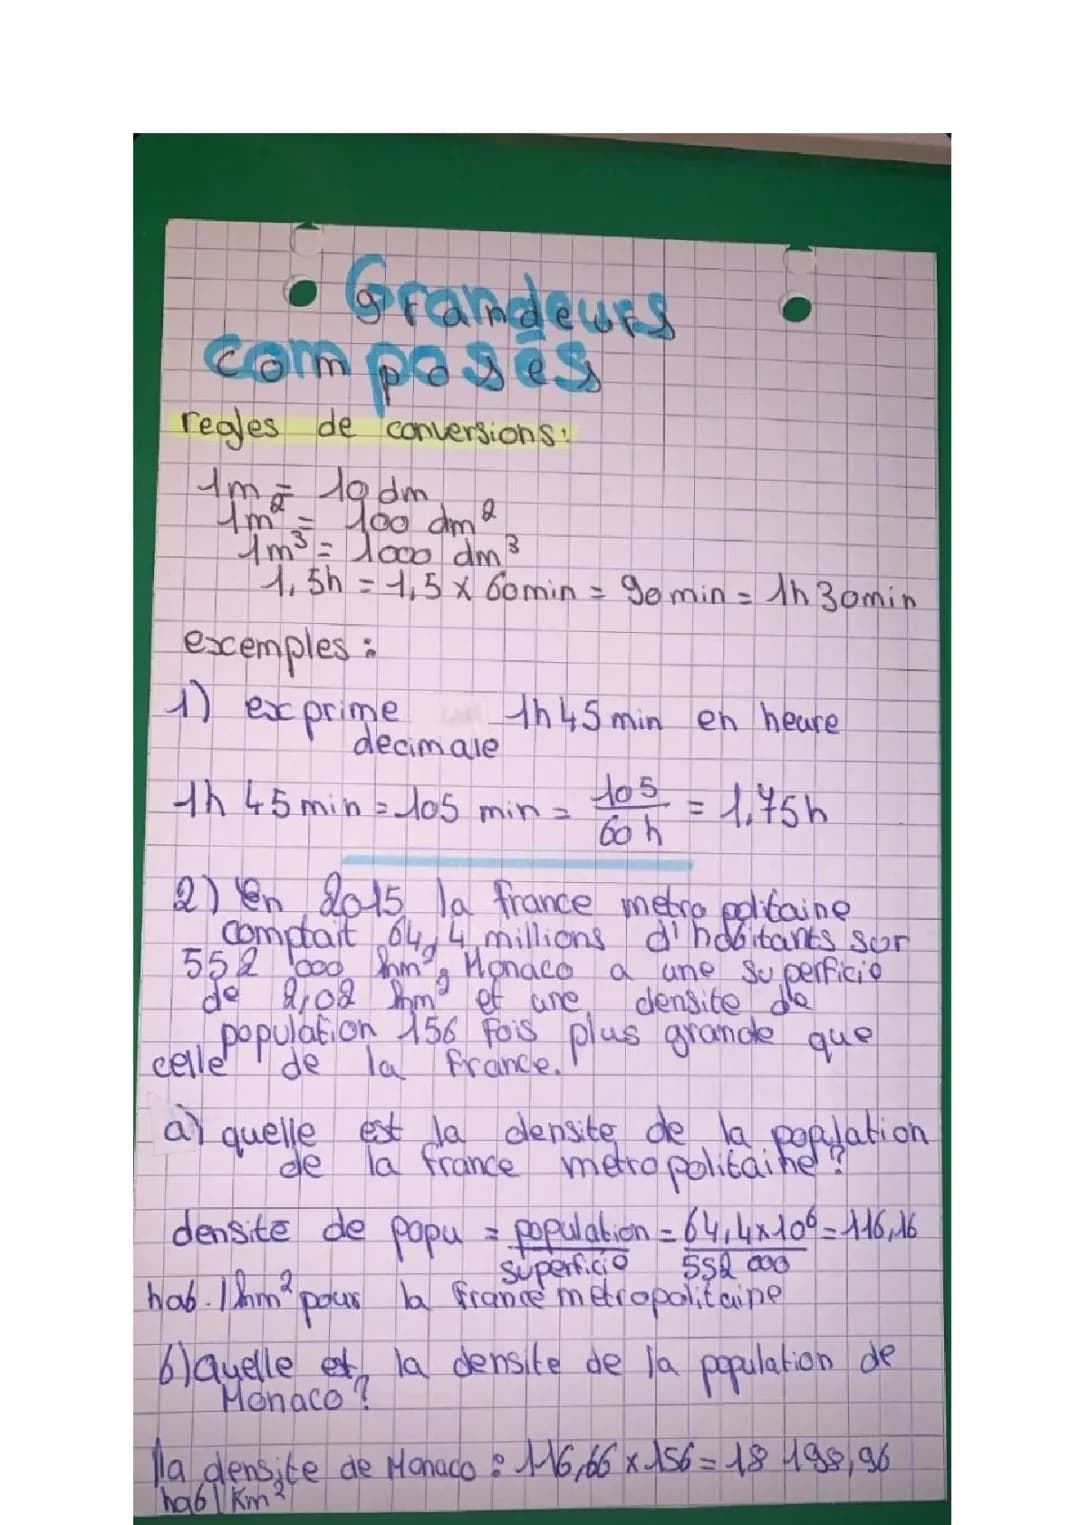 Grandeurs
composés
regles de conversions:
1m = 10 dm
1m² = 100 dm²
1m³ = 1000 dm³
1,5h = 1,5 x 60min = 90min = 1h30min
excemples :
1) exprime 1h45min en heure
decimale
1h 45min = 105 min = 105/60 h = 1,75h
2) En 2015 la france metropolitaine
comptait 64,4 millions d'habitants sur
552 000 km², Monaco a une superficie
de 2,02 km² et une densite de
population 156 fois plus grande que
celle de la france.
a) quelle est la densite de la population
de la france metropolitaine ?
densite de popu = population/superficie = 64,4x10⁶/552 000 = 116,16
hab./km² pour la france metropolitaine
b) quelle est la densite de la population de
Monaco ?
la densite de Monaco : 116,66 x 156 = 18 198,96
hab/Km²